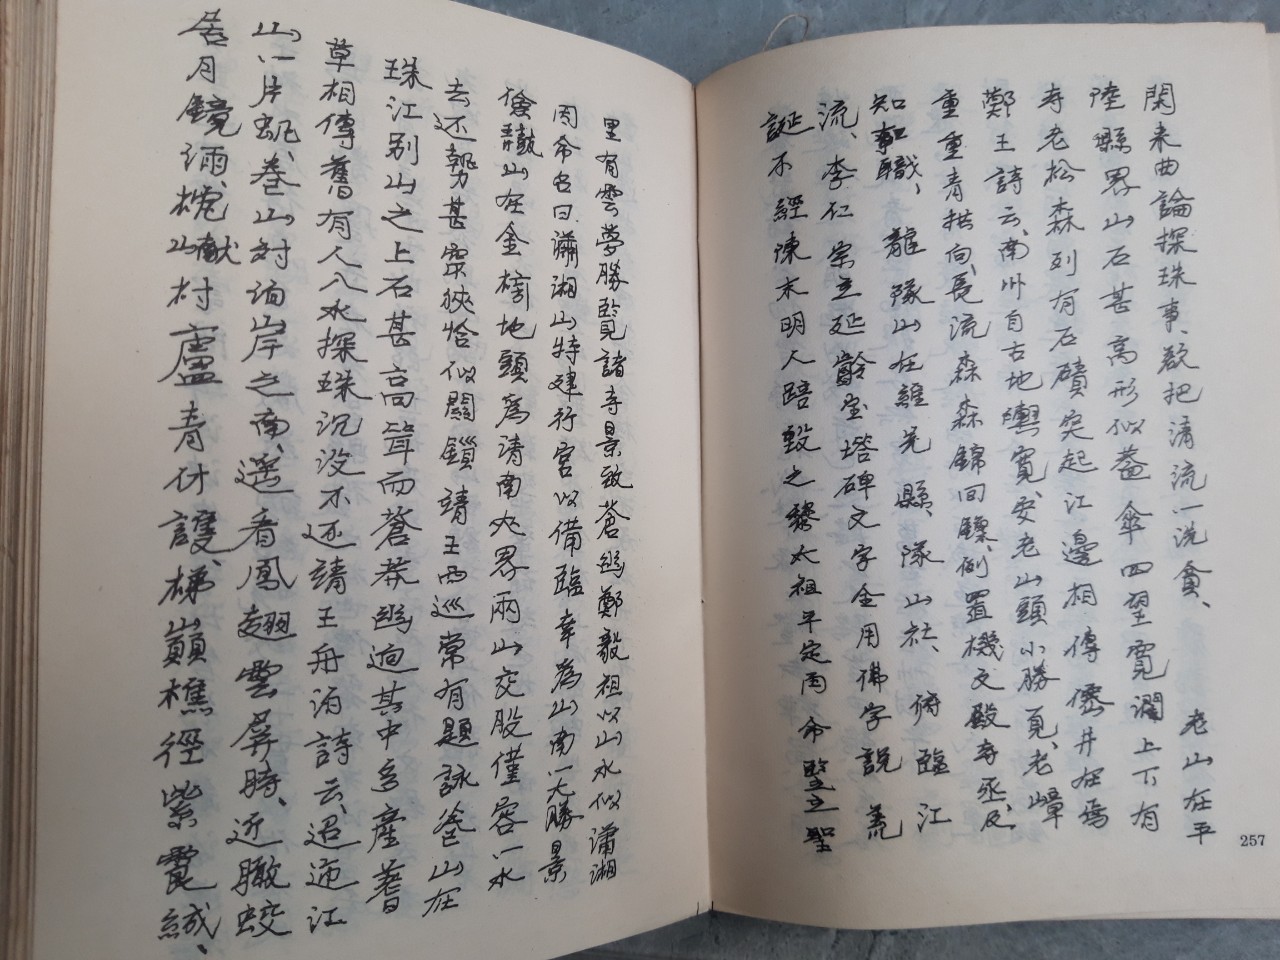 閑來曲論探珠事、欲把清流一洗貪、 老山在平
陸縣界山石甚高形似蓋傘四望寬濶上下有
寺老松森列有石磧突起江邊相傳僊井在焉
鄭王詩云、南州自古地輿寬、安老山頭小勝覓、老嶂
重重青拱向、長流森森錦回鑣、例置機文殿寺丞、及
知事職、 龍隊山在維先縣、隊山社、 俯臨江
流、李仁宗立延齡寶塔碑文字全用佛字說荒
誕不經陳末明人踣毀之黎太祖平定再命豎立聖
257
里有雲夢勝覽諸寺景致蒼幽鄭毅祖以山水似瀟湘
因命名曰瀟湘山特建行宮以備臨幸為山南一大勝景
獪鼓山在金榜地頭為清南大界兩山交股僅容一水
去还勢甚窄狹恰似關鎖靖王西巡常有題詠卷山在
珠江别山之上石甚高聳而蒼莽幽迥其中多產蓍
草相傳舊有人入水探珠沉没不还靖王舟泊詩云、迢迤江
山一片帆、卷山对泊岸之南、遥看鳳翅雲屏時、近瞰蛟
居月鏡涵、槐山献村廬青付護、梯巔樵徑紫雲緘、